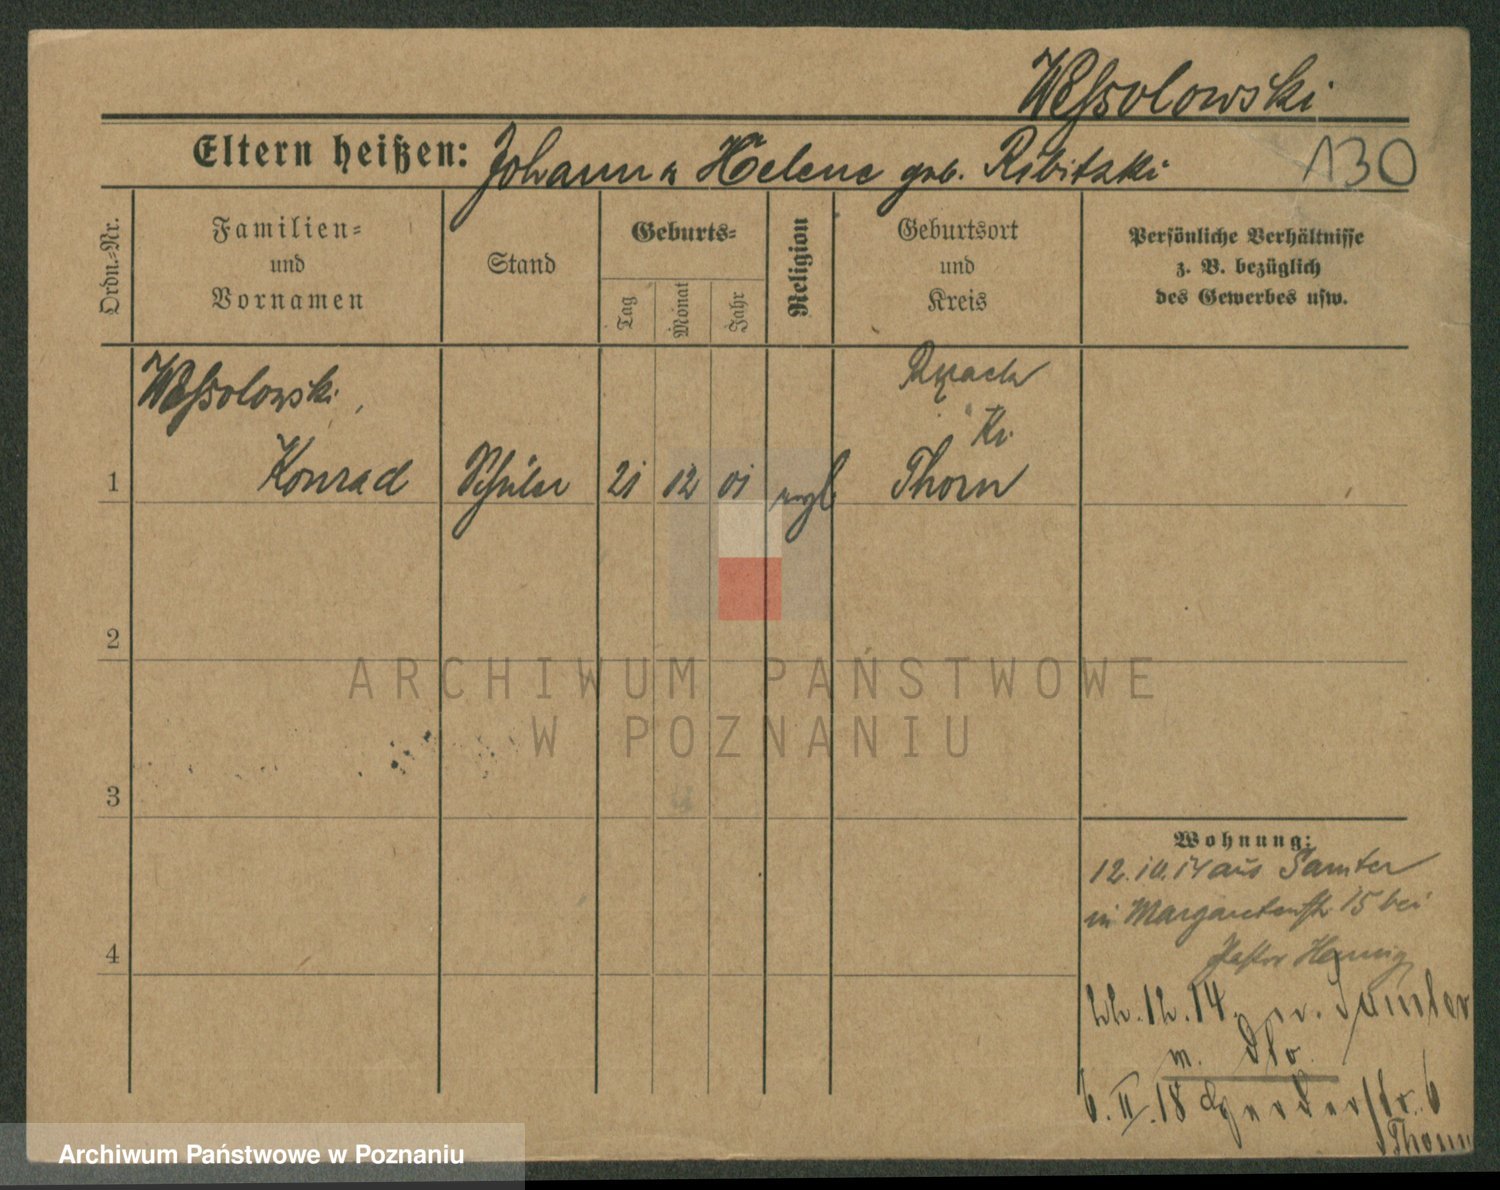 Weſsolowski
Eltern heißen: Johann u Helene geb. Ribitzki
130
Ordn.-Nr.
Familien-
und
Vornamen
Stand
Geburts-
Tag
Monat
Jahr
Religion
Geburtsort
und
Kreis
Persönliche Verhältnisse
z. B. bezüglich
des Gewerbes usw.
Weſsolowski,
Kr.
1 Konrad Schüler 21 12 01 evgl Thorn
2
ARCHIWUM PAŃSTWOWE
W POZNANIU
3
Wohnung:
12.10.14 aus Samter
in Margaretenstr 15 bei
4
Pastor Hennig
22.12.14. Samter
m.
6.II.18 str. 6
Thorn
Archiwum Państwowe w Poznaniu